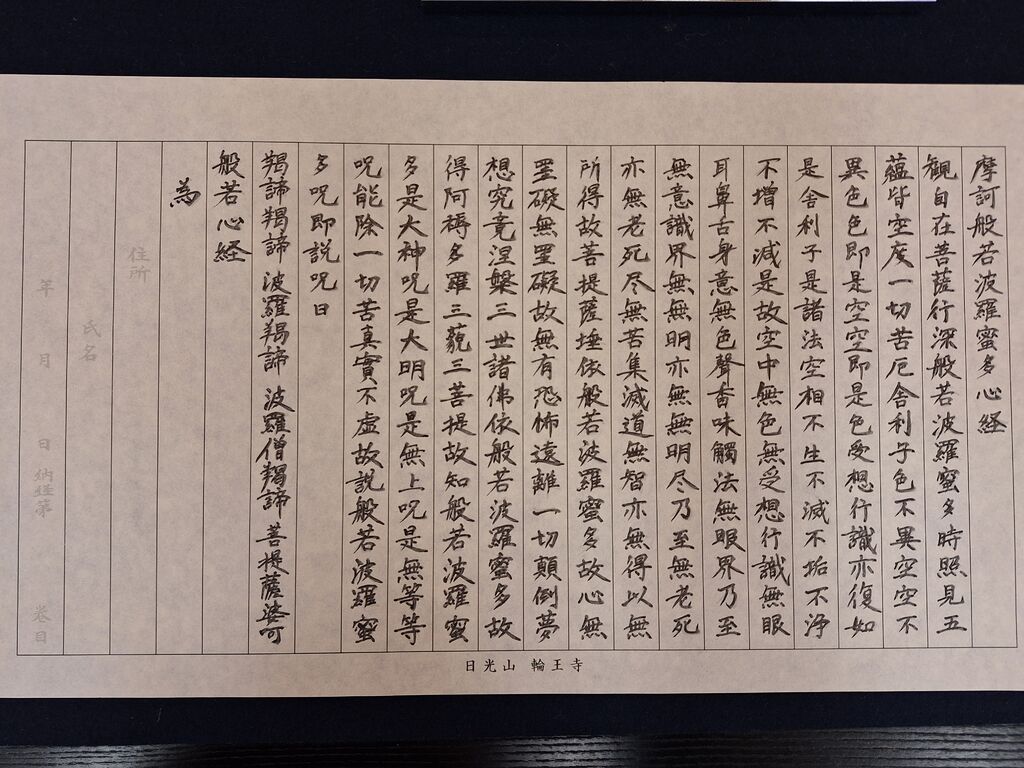 摩訶般若波羅蜜多心経
観自在菩薩行深般若波羅蜜多時照見五
蘊皆空度一切苦厄舎利子色不異空空不
異色色即是空空即是色受想行識亦復如
是舎利子是諸法空相不生不滅不垢不浄
不増不減是故空中無色無受想行識無眼
耳鼻舌身意無色聲香味觸法無眼界乃至
無意識界無無明亦無無明尽乃至無老死
亦無老死尽無苦集滅道無智亦無得以無
所得故菩提薩埵依般若波羅蜜多故心無
罣礙無罣礙故無有恐怖遠離一切顛倒夢
想究竟涅槃三世諸佛依般若波羅蜜多故
得阿耨多羅三藐三菩提故知般若波羅蜜
多是大神呪是大明呪是無上呪是無等等
呪能除一切苦真實不虚故説般若波羅蜜
多呪即説呪曰
羯諦羯諦 波羅羯諦 波羅僧羯諦 菩提薩婆訶
般若心経
為
住所
氏名
年 月 日 納経第 巻目
日光山 輪王寺